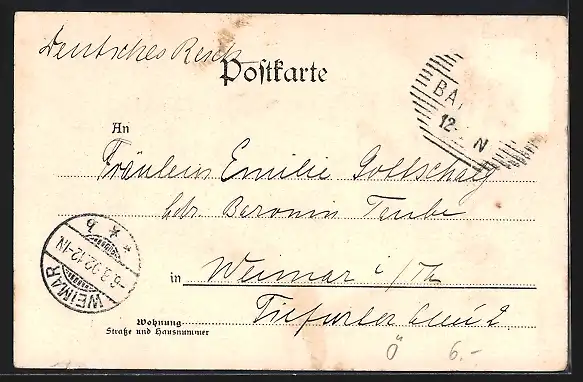 Deutsches Reich
Postkarte
BA
12- N
An
Fräulein Emilie Gottschalg
bei Baronin Taube
WEIMAR
12-1N
* * b
in Weimar i/Th
Wohnung
Straße und Hausnummer
Tiefurter Allee 2.
Ö 6.-